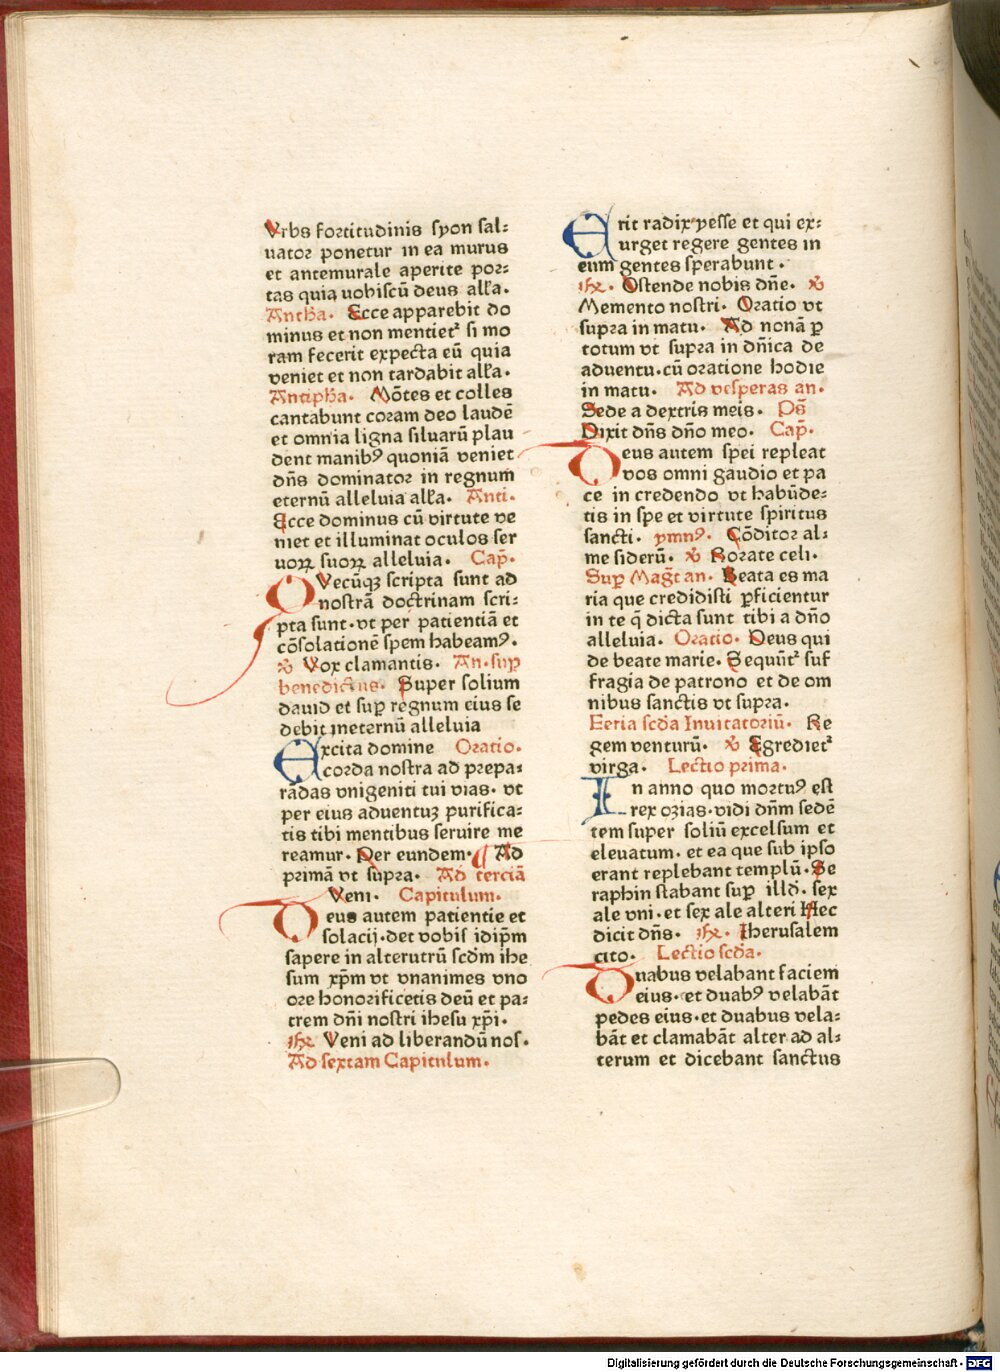 Vrbs fortitudinis syon sal⸗
uator ponetur in ea murus
et antemurale aperite por⸗
tas quia uobiscū deus alla.
Antha. Ecce apparebit do
minus et non mentietᷣ si mo
ram fecerit expecta eū quia
veniet et non tardabit alla.
Antipha. Mōtes et colles
cantabunt coram deo laudē
et omnia ligna siluarū plau
dent manibꝰ quoniā veniet
dn̄s dominator in regnum
eternū alleluia alla. Anti.
Ecce dominus cū virtute ve
niet et illuminat oculos ser
uoꝝ suoꝝ alleluia. Cap̄.
QVecūqꝫ scripta sunt ad
nostrā doctrinam scri⸗
pta sunt. vt per patientiā et
cōsolationē spem habeamꝰ.
℣ Vox clamantis. An. sup̄
benedictus. Super solium
dauid et sup̄ regnum eius se
debit ineternū alleluia
Excita domine Oratio.
corda nostra ad prepa⸗
rādas vnigeniti tui vias. vt
per eius aduentuꝫ purifica⸗
tis tibi mentibus seruire me
reamur. Per eundem. ¶ Ad
primā vt supra. Ad terciā
Veni. Capitulum.
Deus autem patientie et
solacij. det vobis idip̄m
sapere in alterutrū scd̄m ihe
sum xp̄m vt vnanimes vno
ore honorificetis deū et pa⸗
trem dn̄i nostri ihesu xp̄i.
℟ Veni ad liberandū nos.
Ad sextam Capitulum.
Erit radix yesse et qui ex⸗
urget regere gentes in
eum gentes sperabunt.
℟. Ostende nobis dn̄e. ℣
Memento nostri. Oratio vt
supra in matu. Ad nonā ꝑ
totum vt supra in dn̄ica de
aduentu. cū oratione hodie
in matu. Ad vesperas an.
Sede a dextris meis. Ps̄
Dixit dn̄s dn̄o meo. Cap̄.
Deus autem spei repleat
vos omni gaudio et pa
ce in credendo vt habūde⸗
tis in spe et virtute spiritus
sancti. ymnꝰ. Cōditor al⸗
me siderū. ℣ Rorate celi.
Sup̄ Mag̃t an. Beata es ma
ria que credidisti ꝑficientur
in te q̄ dicta sunt tibi a dn̄o
alleluia. Oratio. Deus qui
de beate marie. Sequūtᷣ suf
fragia de patrono et de om
nibus sanctis vt supra.
Feria scd̄a Inuitatoriū. Re
gem venturū. ℣ Egredietᷣ
virga. Lectio prima.
In anno quo mortuꝰ est
rex ozias. vidi dn̄m sedē
tem super soliū excelsum et
eleuatum. et ea que sub ipso
erant replebant templū. Se
raphin stabant sup̄ illd̄. sex
ale vni. et sex ale alteri Hec
dicit dn̄s. ℟. Iherusalem
cito. Lectio scd̄a.
Duabus velabant faciem
eius. et duabꝰ velabāt
pedes eius. et duabus vela⸗
bāt et clamabāt alter ad al⸗
terum et dicebant sanctus
Digitalisierung gefördert durch die Deutsche Forschungsgemeinschaft - DFG